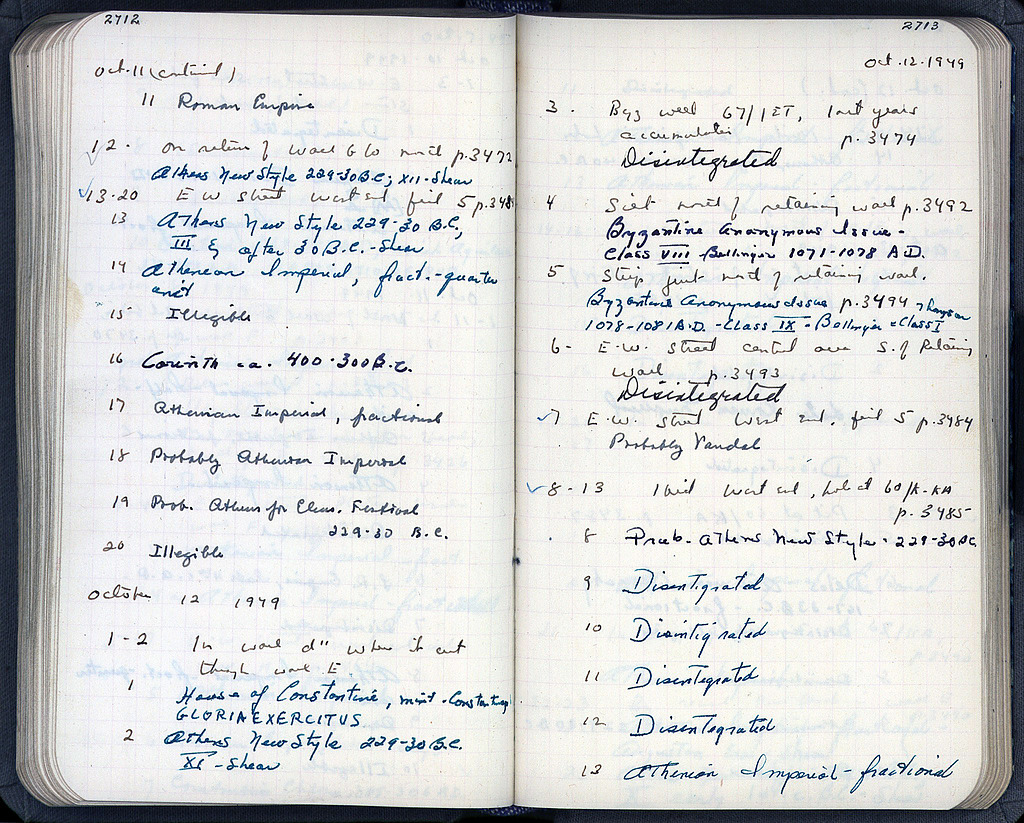 2712
Oct. 11 (continued)
11 Roman Empire
12. On return of wall G W north p.3472
Athens New Style 229-30 B.C; XII-Shear
13-20 E W street west end fill 5 p.348
13 Athens New Style 229-30 B.C.,
III & after 30 B.C.-Shear
14 Athenean Imperial, fract.-quarter
unit
15 Illegible
16 Corinth ca. 400-300 B.C.
17 Athenian Imperial, fractional
18 Probably Athenian Imperial
19 Prob. Athens for Eleus. Festival
229-30 B.C.
20 Illegible
October 12 1949
1-2 In wall d" where it cut
through wall E.
1 House of Constantine, mint-Constantinop
GLORIA EXERCITUS
2 Athens New Style 229-30 B.C.
XI-Shear
2713
Oct. 12. 1949
3. Byz well 67/ΙΣΤ, last years
accumulation p.3474
Disintegrated
4 north of retaining wall p.3492
Byzantine Anonymous Issue-
Class VIII-Bellinger 1071-1078 A.D.
5 Strip just north of retaining wall.
Byzantine Anonymous Issue p.3494
1078-1081 A.D. -Class IX-Bellinger = Class I
6- E-W. street central area S. of Retaining
wall p.3493
Disintegrated
7 E-W. street West end, fill 5 p.3484
Probably Vandal
8-13 Ibid west end, 60/Κ-ΚΑ
p. 3485
8 Prob. Athens New Style-229-30 BC
9 Disintigrated
10 Disintigrated
11 Disintegrated
12 Disintegrated
13 Athenian Imperial-fractional